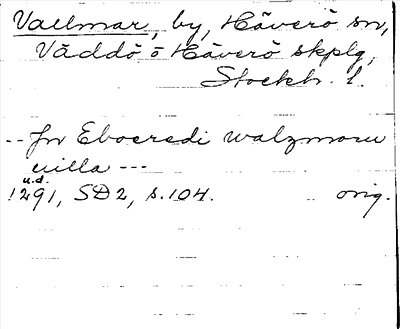 Vallmar, by, Häverö sn,
Väddö o Häverö skplg,
Stockh. l.
-- jn Eboeredi walzmaru
uilla ---
u.d.
1291, SD2, s.104. orig.